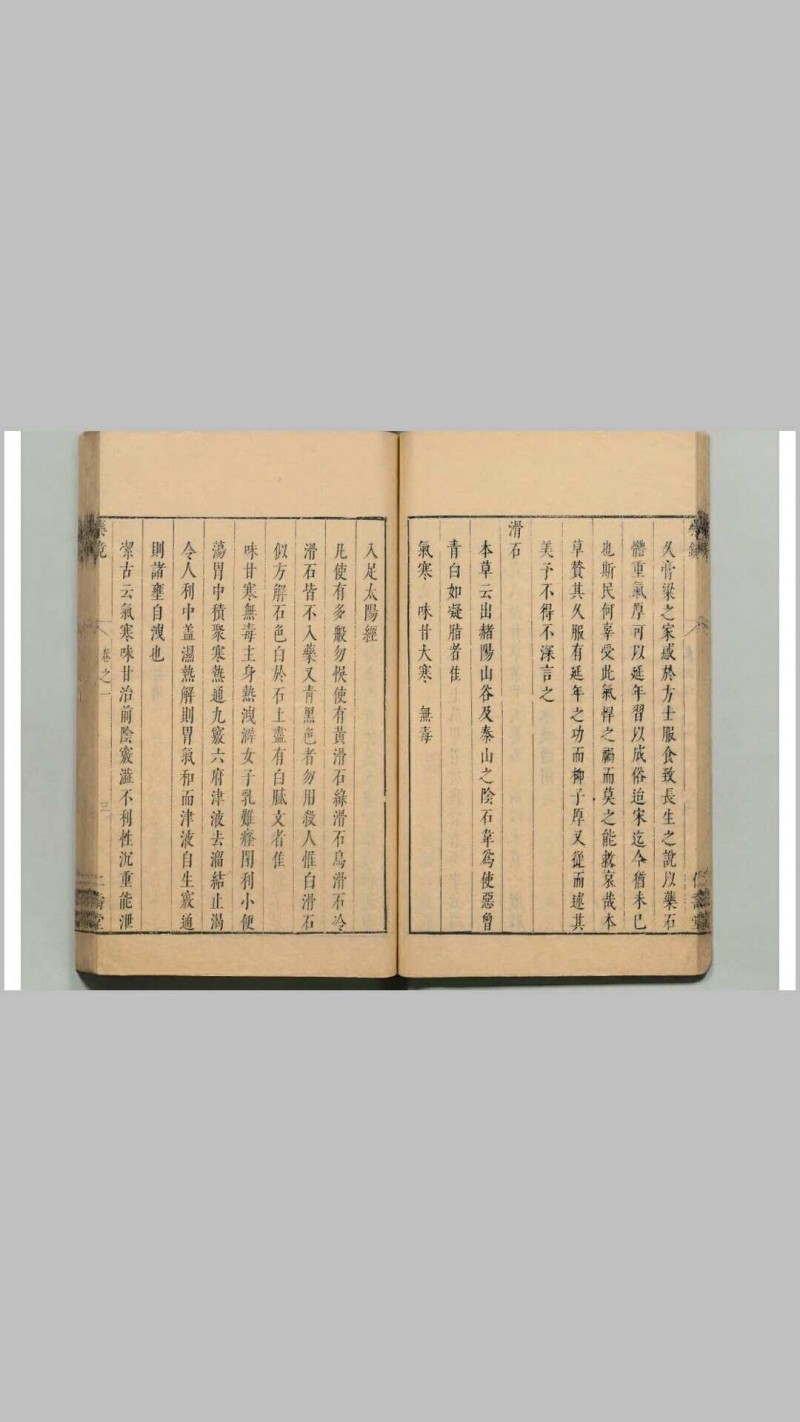 久膏粱之家惑於方士服食致長生之說以藥石
體重氣厚可以延年習以成俗迨宋迄今猶未已
也斯民何辜受此氣悍之禍而莫之能救哀哉本
草賛其久服有延年之功而栁子厚又從而述其
美予不得不深言之
滑石
本草云出赭陽山谷及泰山之陰石韋爲使惡曾
青白如凝脂者隹
氣寒 味甘大寒 無毒
入足太陽經
凡使有多般勿悞使有黃滑石綠滑石烏滑石冷
滑石皆不入藥又青黑色者勿用殺人惟白滑石
似方解石色白於石上畫有白膩文者隹
味甘寒無毒主身熱洩澼女子乳難癃閉利小便
蕩胃中積聚寒熱通九竅六府津液去溜結止渴
令人利中盖濕熱解則胃氣和而津液自生竅通
則諸壅自洩也
潔古云氣寒味甘治前陰竅澁不利性沉重能泄
藥鏡
卷之一
三